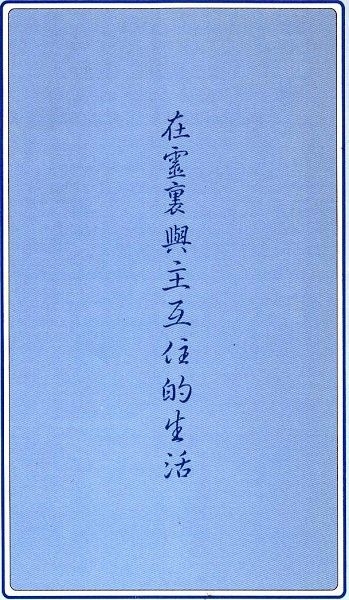 在靈裏與主互住的生活